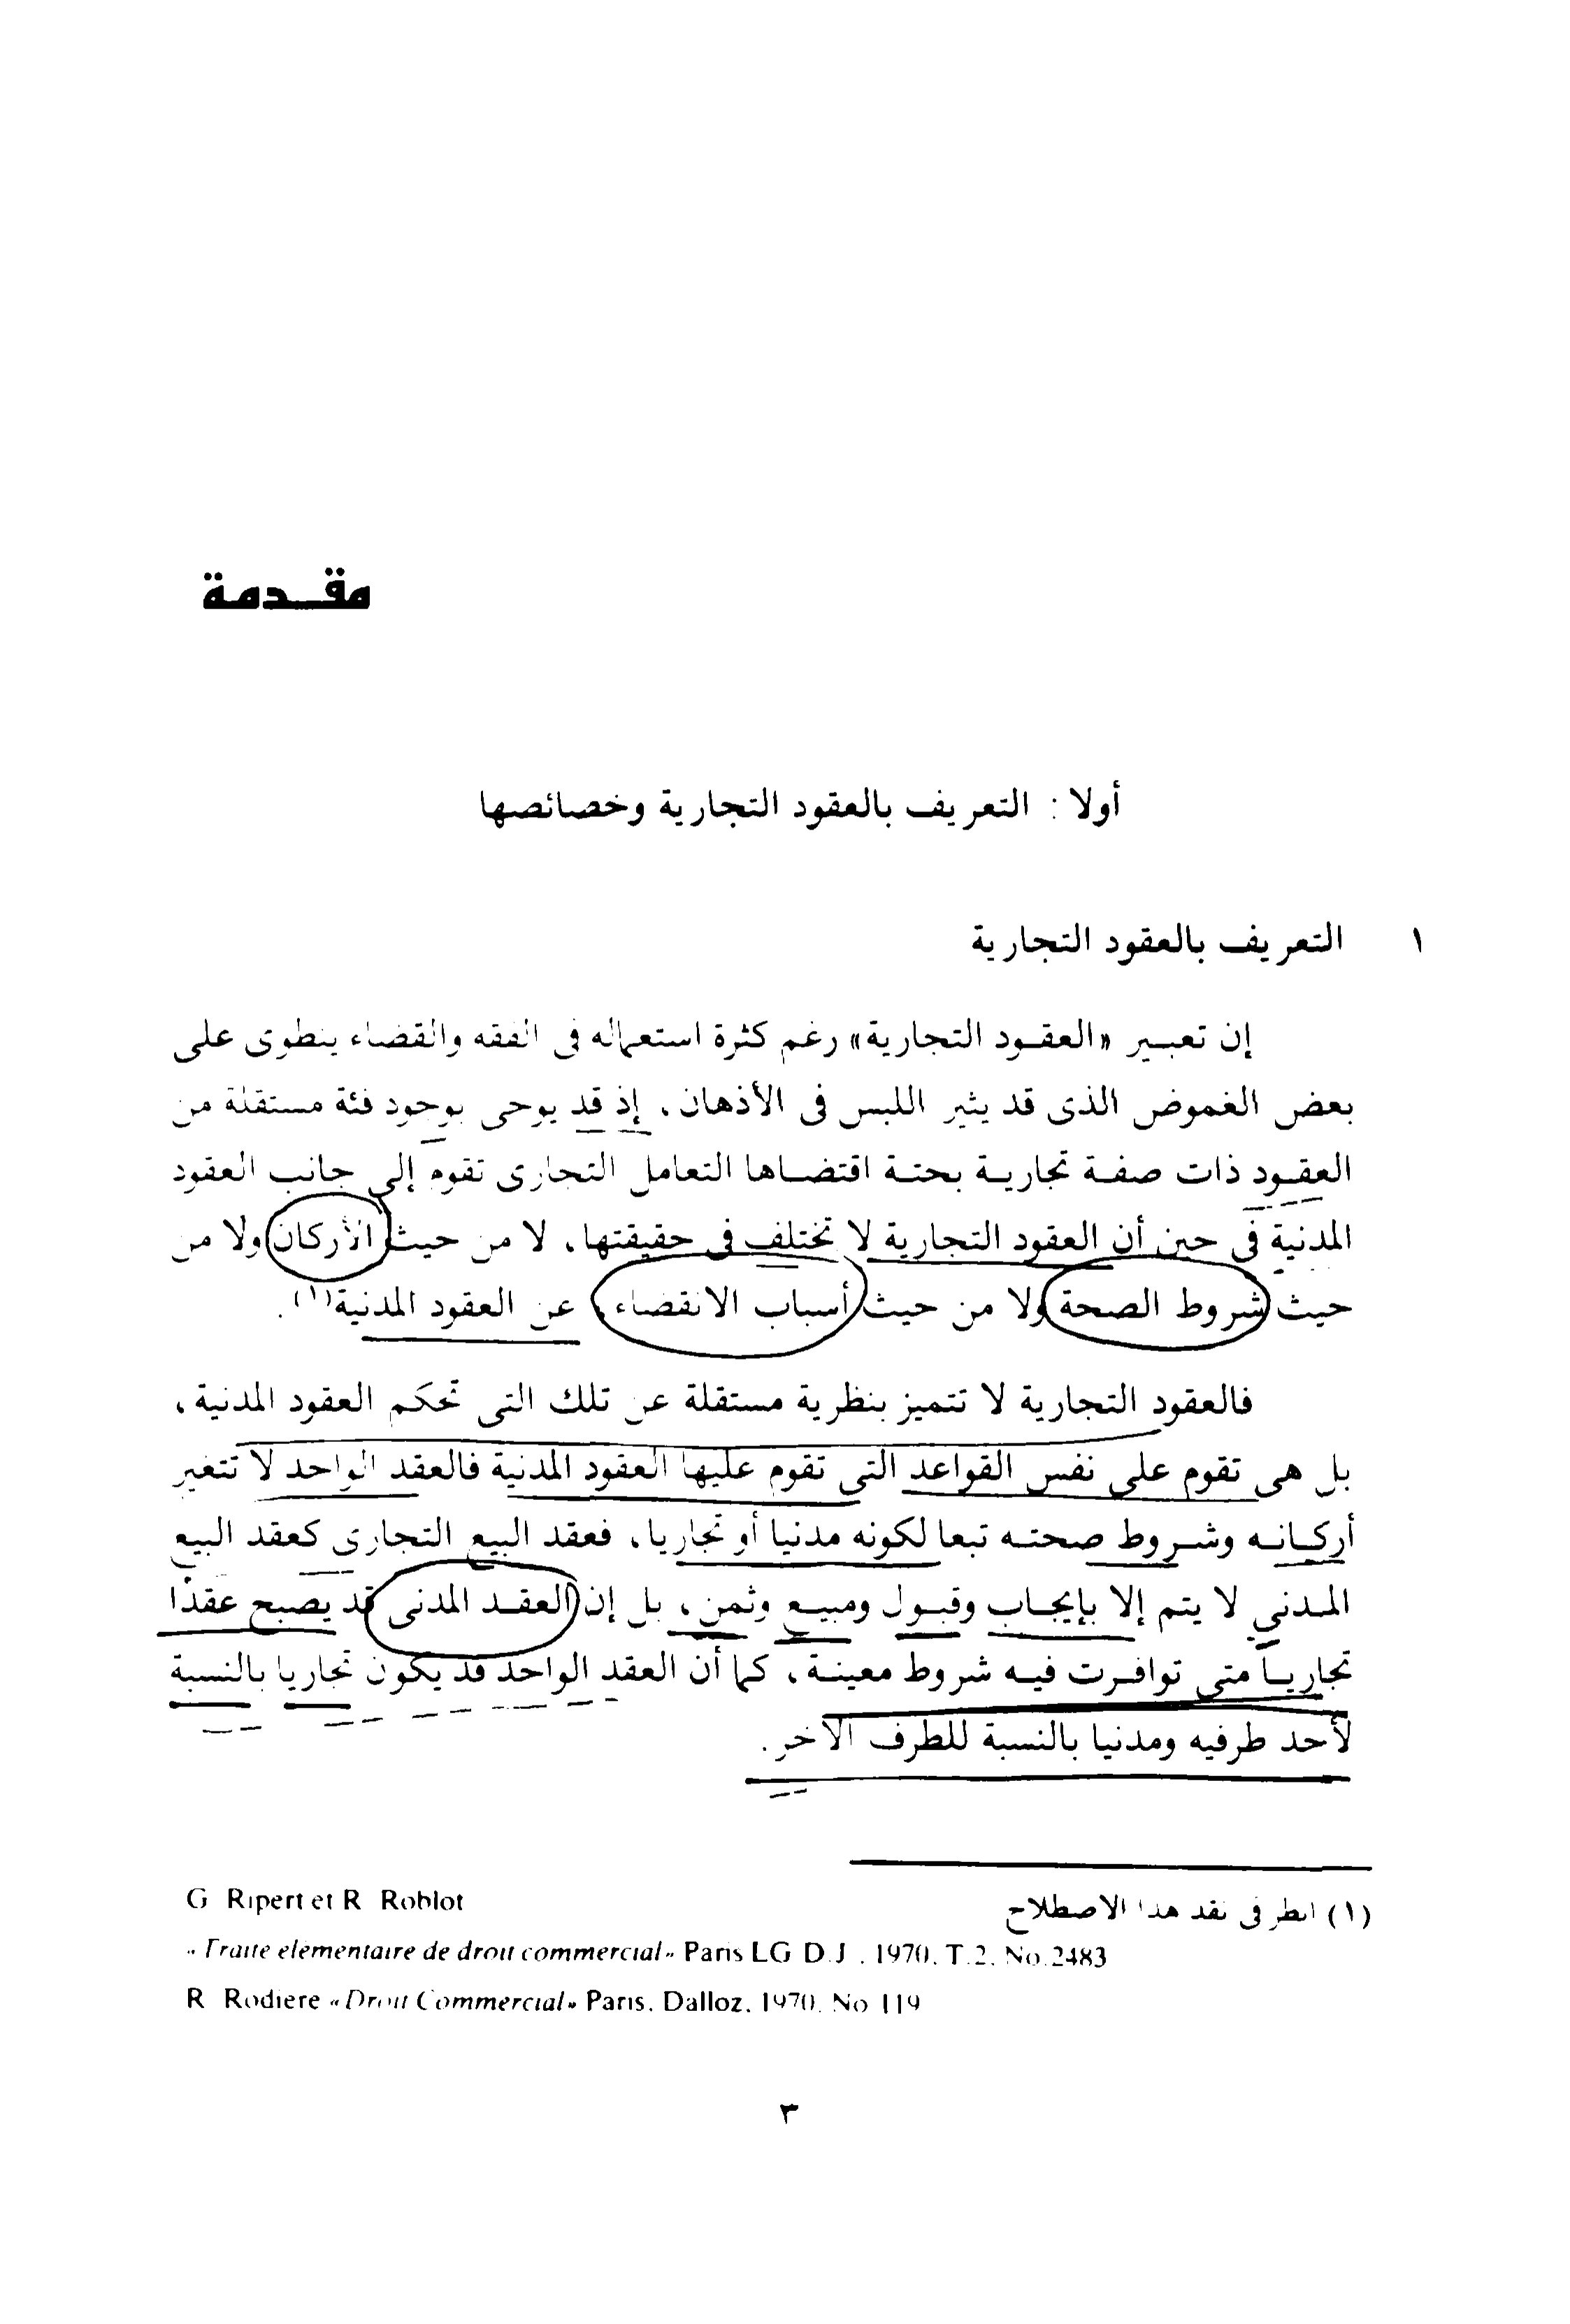 مقـدمة
أولا : التعريف بالعقود التجارية وخصائصها
١ التعريف بالعقود التجارية
إن تعبـير «العقـود التجارية» رغم كثرة استعماله فى الفقه والقضاء ينطوى على
بعض الغموض الذى قد يثير اللبس فى الأذهان ، إذ قد يوحى بوجود فئة مستقلة من
العقـود ذات صفـة تجاريـة بحتـة اقتضـاها التعامل التجارى تقوم إلى جانب العقود
المدنية فى حين أن العقود التجارية لا تختلف فى حقيقتها ، لا من حيث الأركان ولا من
حيث شروط الصحة ولا من حيث أسباب الانقضاء ، عن العقود المدنية(١) .
فالعقود التجارية لا تتميز بنظرية مستقلة عن تلك التى تحكم العقود المدنية ،
بل هى تقوم على نفس القواعد التى تقوم عليها العقود المدنية فالعقد الواحد لا تتغير
أركـانـه وشـروط صحتـه تبعا لكونه مدنيا أو تجاريا ، فعقد البيع التجارى كعقد البيع
المـدنى لا يتم إلا بإيجـاب وقبـول ومبيـع وثمن ، بل إن العقـد المدنى قد يصبح عقدا
تجاريـا متى توافـرت فيـه شروط معينـة ، كما أن العقد الواحد قد يكون تجاريا بالنسبة
لأحد طرفيه ومدنيا بالنسبة للطرف الآخر .
(١) انظر فى نقد هذا الاصطلاح G Ripert et R Roblot
« Traite elementaire de droit commercial» Paris LG D.J . 1970. T.2. No.2483
R Rodiere «Droit Commercial» Paris. Dalloz. 1970. No 119
٣